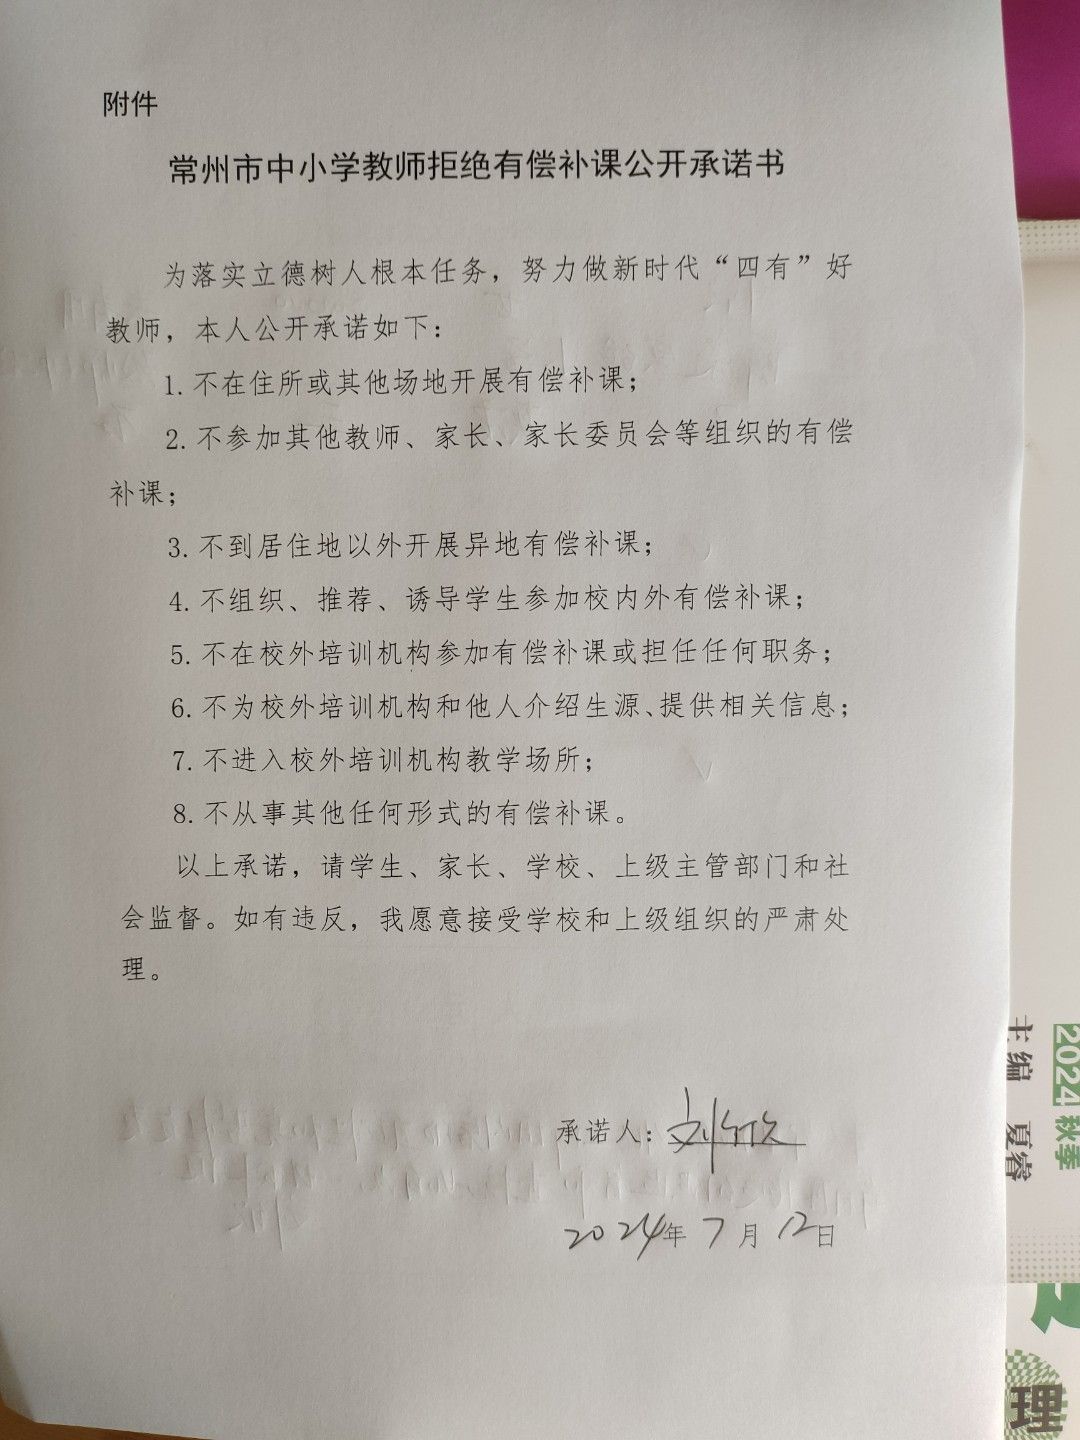 附件
常州市中小学教师拒绝有偿补课公开承诺书
为落实立德树人根本任务，努力做新时代“四有”好
教师，本人公开承诺如下：
1.不在住所或其他场地开展有偿补课；
2.不参加其他教师、家长、家长委员会等组织的有偿
补课；
3.不到居住地以外开展异地有偿补课；
4.不组织、推荐、诱导学生参加校内外有偿补课；
5.不在校外培训机构参加有偿补课或担任任何职务；
6.不为校外培训机构和他人介绍生源、提供相关信息；
7.不进入校外培训机构教学场所；
8.不从事其他任何形式的有偿补课。
以上承诺，请学生、家长、学校、上级主管部门和社
会监督。如有违反，我愿意接受学校和上级组织的严肃处
理。
承诺人：刘
2024年7月12日
2024秋季
主编 夏睿
理